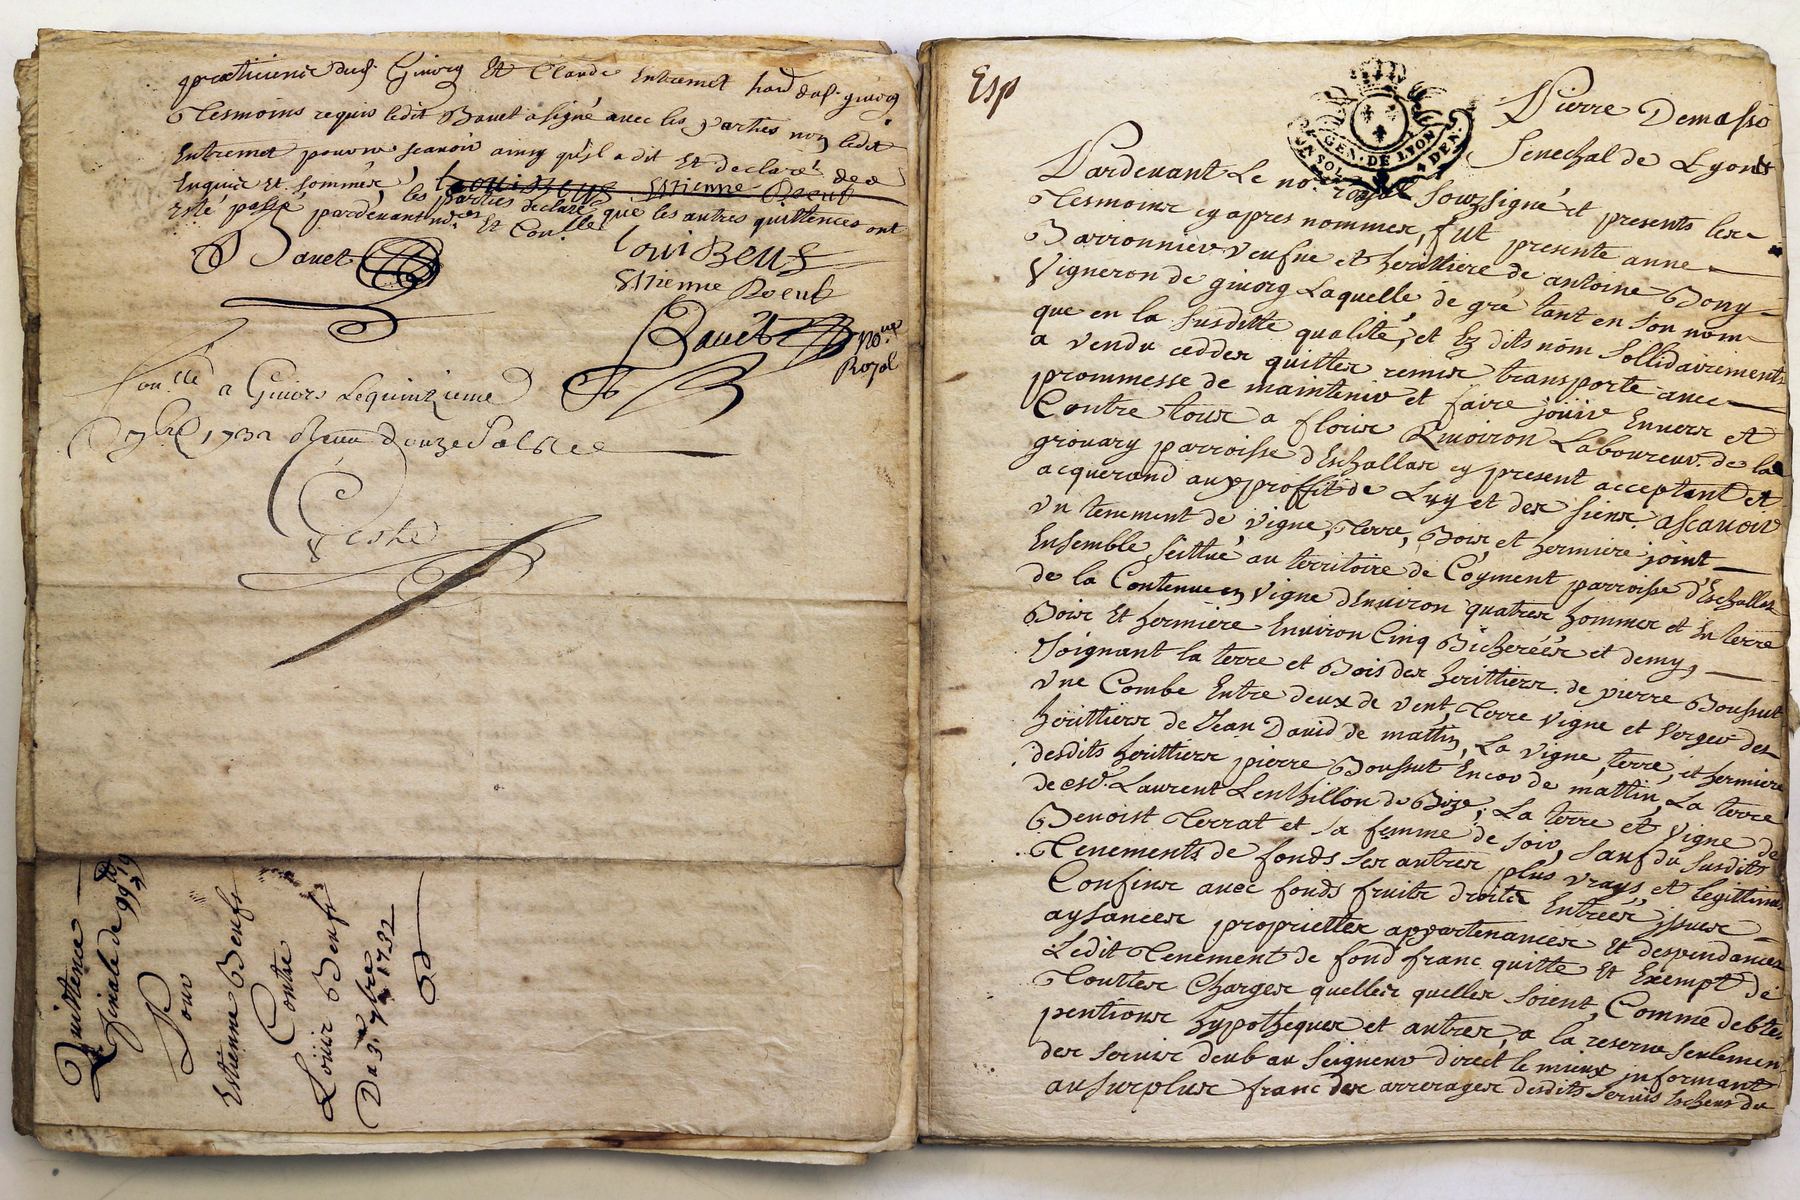 praticiens dud. Givorg Et Claude Entremet hard dud. givorg
Tesmoins requis ledit Bavet a signé avec les parties non ledit
Entremet pour ne scavoir ainsy qu'il a dit Et declaré de ce
Enquis et sommés, les parties declare que les autres quittences ont
esté passé pardevant nd.res Et Con.lle
louis Beuf Estienne Boeuf
Bavet
louis Beuf
Estienne Boeuf
Bavet No.re
Royal
Con.llé a Givors Le quinzieme
7bre 1732 Receu douze sols
Quittence
finale de 99 lt 19
Pour
Estienne Beuf
Contre
Loüis Beuf
Du 3e 7bre 1732
Esp
GEN. DE LYON
UN SOL 4 DEN.
Pierre Demasso
Senechal de Lyon
Pardevant Le no.re royal Souzsigné et presents les
Tesmoins cy apres nommes, fut presente anne
Barronnier veufve et herittiere de antoine Bony
Vigneron de givorg Laquelle de gré tant en son nom
que en la susditte qualité, et Ez dits nom sollidairements
a vendu cedder quitter remis transporte avec
prommesse de maintenir et faire jouir Envers et
Contre tous a floris Rivoiron Laboureur de la
grouary parroisse d'Eschallas cy present acceptant et
acquerand aux proffit de Luy et des siens ascavoir
un tenement de vigne, Terre, Bois, et hermiere joint
Ensemble scittué au territoire de Coyment parroisse d'Eschallas
de la Contenue en vigne d'Environ quatres hommes et En terre
Bois Et hermiere Environ Cinq Bicheréés et demy,
Joignant la terre et Bois des herittiers de pierre Boussut
une Combe Entre deux de vent, Terre vigne et verger des
herittiers de Jean David de mattin, La vigne, terre, et hermiere
desdits herittiers pierre Boussut Encor de mattin, La terre
de esd. Laurent Lenthillon de Bize, La terre et vigne de
Benoist Terrat et sa femme de soir, sauf du susdits
Tenements de fonds ses autres plus vrays et legittimes
Confins avec fonds fruits droits Entrées issues
aysances proprietter appartenances et despendances
Ledit Tenement de fond franc quitte Et Exempt de
Touttes Charges quelles quelles soient, Comme debtes
pentions hypotheques et autres, a la reserve seulement
des servis deub au seigneur direct le mieux informant
au surplus franc des arrerages desdits servis Escheus du